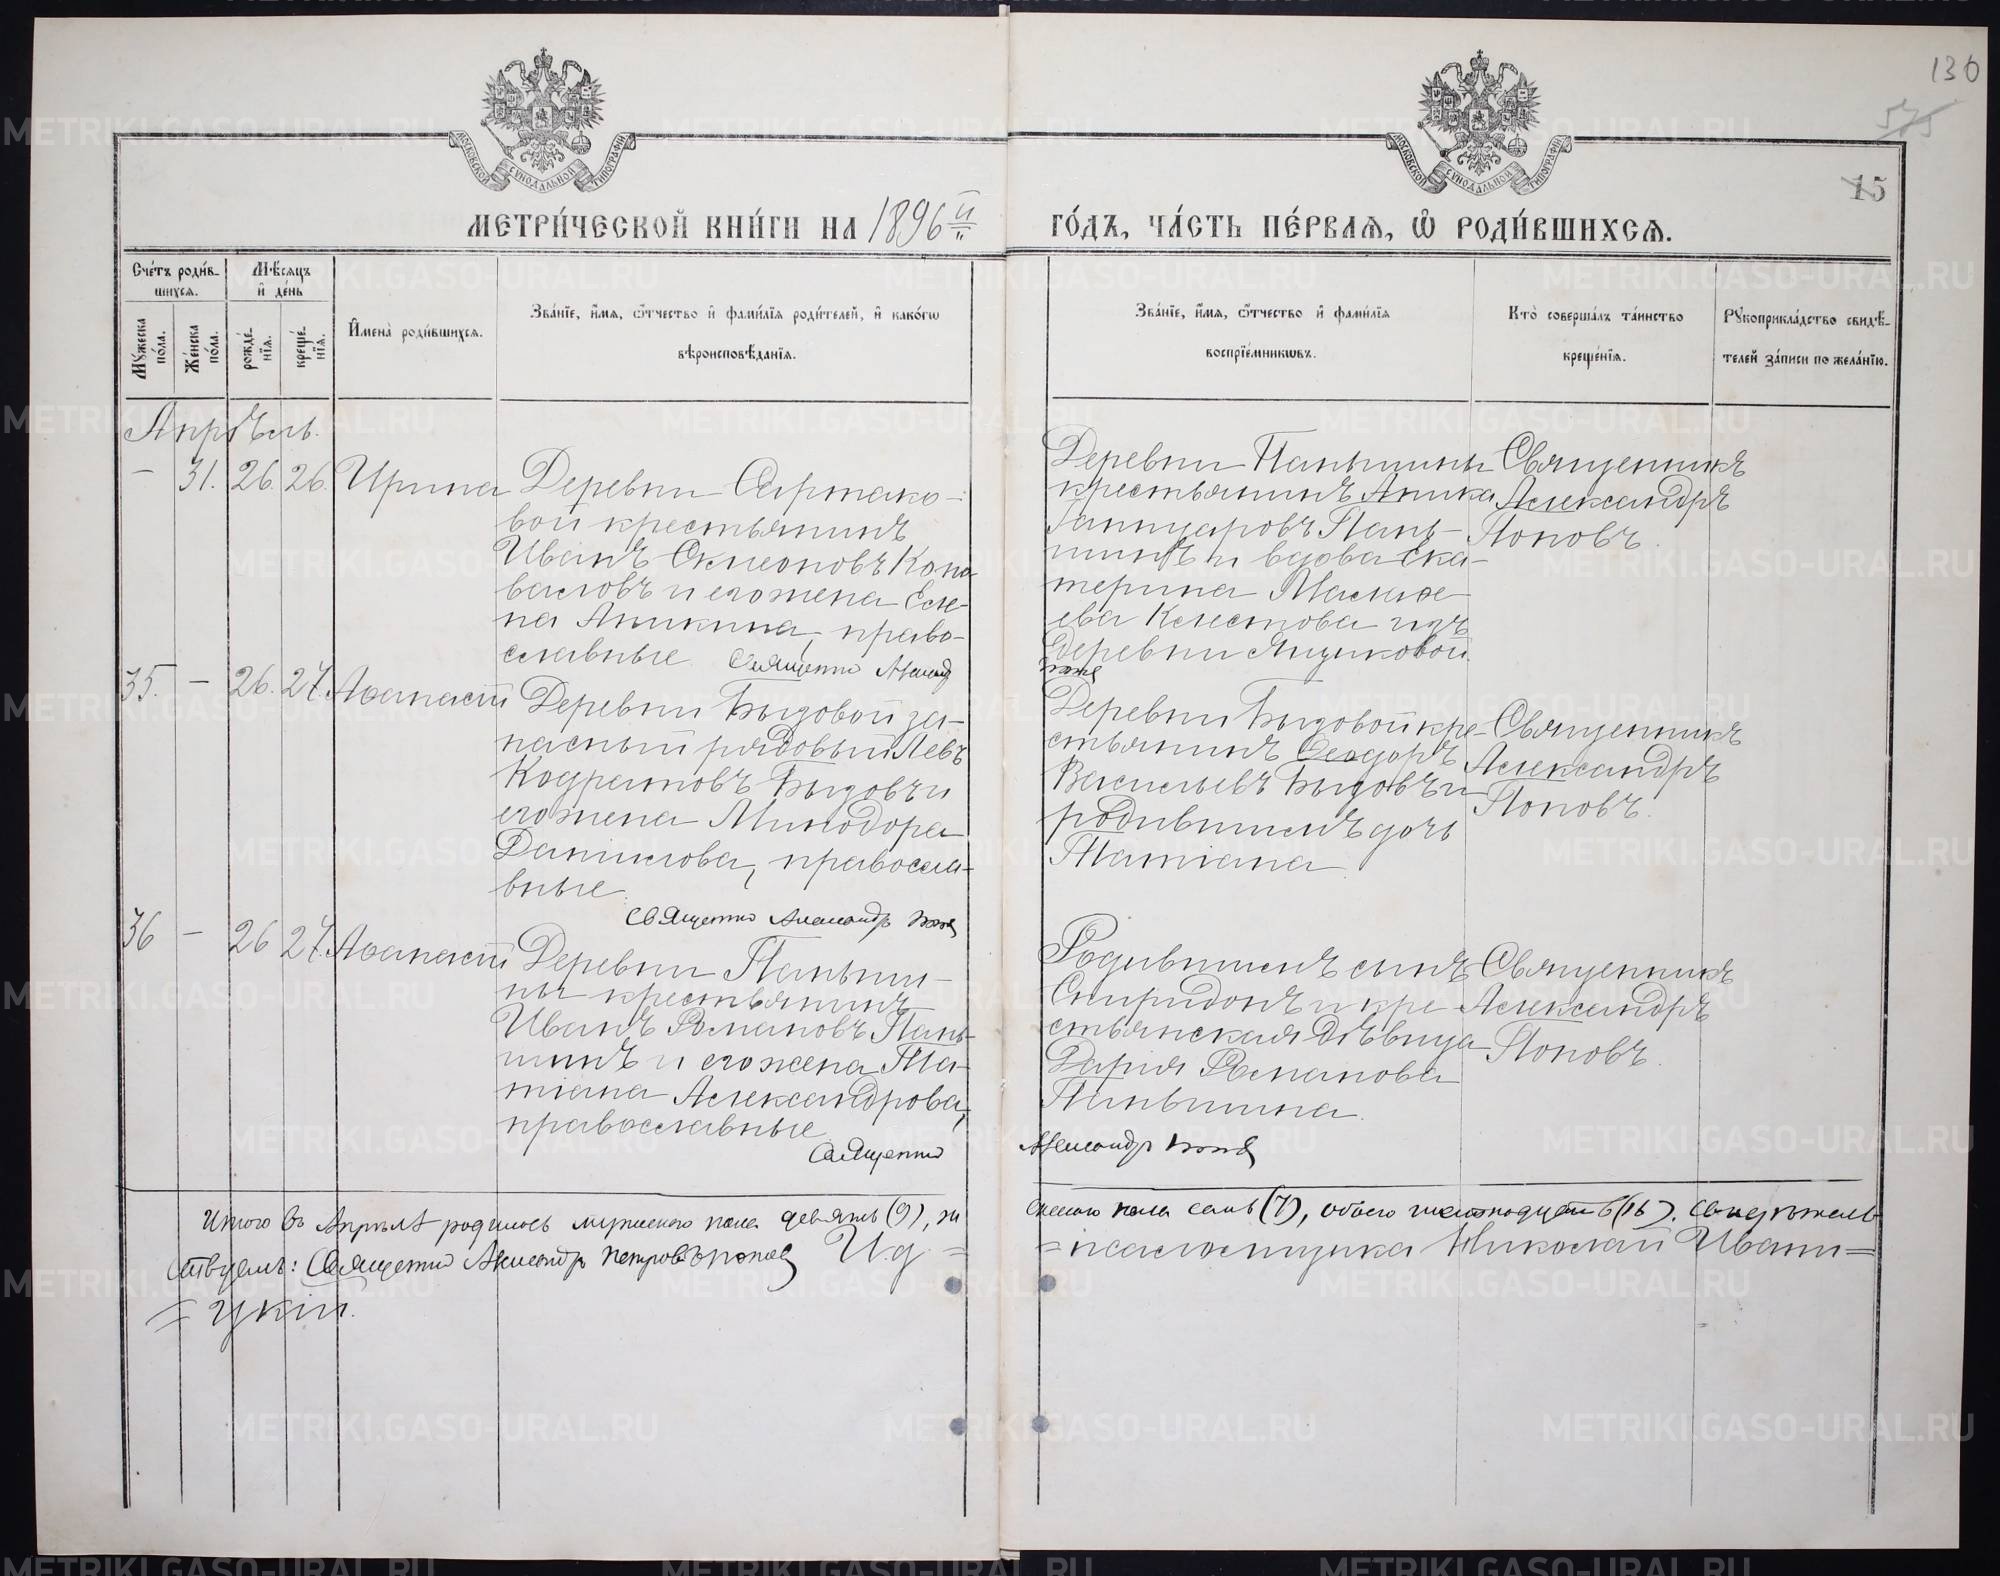 130
575
15
МОСКОВСКОЙ СѴНОДАЛЬНОЙ ТИПОГРАФІИ
МОСКОВСКОЙ СѴНОДАЛЬНОЙ ТИПОГРАФІИ
МЕТРИ́ЧЕСКОЙ КНИ́ГИ НА 1896 й ГО́ДЪ, ЧА́СТЬ ПЕ́РВАѦ, Ѡ҆ РОДИ́ВШИХСѦ.
Сче́тъ роди́в-
шихсѧ.
Мѣ́сѧцъ
и҆ де́нь
Мꙋ́жеска
по́ла.
Же́нска
по́ла.
рожде́-
нїѧ.
креще́-
нїѧ.
И҆мена̀ роди́вшихсѧ.
Зва́нїе, и҆́мѧ, ѻ҆́тчество и҆ фами́лїѧ роди́телей, и҆ како́гѡ
вѣроисповѣ́данїѧ.
Зва́нїе, и҆́мѧ, ѻ҆́тчество и҆ фами́лїѧ
воспрїе́мникѡвъ.
Кто̀ соверша́лъ та́инство
креще́нїѧ.
Рꙋкоприкла́дство свидѣ́-
телей за́писи по жела́нїю.
Апрѣль.
– 31. 26. 26. Ирина
Деревни Сартако-
вой крестьянинъ
Иванъ Симеоновъ Коно
валовъ и его жена Еле-
на Аникина, право-
славные
Священник Александр
Деревни Паньшины
крестьянинъ Аника
Ианнуаровъ Пань-
шинъ и вдова Ека-
терина
ева Клестова изъ
деревни Языковой.
Попов
Священникъ
Александръ
Поповъ.
35. – 26. 27. Аѳанасій
Деревни Бызовой за-
пасный рядовый Левъ
Кодратовъ Бызовъ и
его жена Минодора
Данилова, правосла-
вные.
Священник Александр Попов
Деревни Бызовой кре-
стьянинъ Ѳеодоръ
Васильевъ Бызовъ и
родившимъ дочь
Татіана
Священникъ
Александръ
Поповъ.
36 – 26 27. Аѳанасій
Деревни Паньши-
ны крестьянинъ
Иванъ Романовъ Пань-
шинъ и его жена Та-
тіана Александрова,
православные
Священник
Родившимъ сынъ
Спиридонъ и кре
стьянская дѣвица
Дарія Романова
Паньшина.
Александр Попов
Священникъ
Александръ
Поповъ.
Итого въ Апрѣлѣ родилось мужескаго пола девять (9), жен
скаго пола семь (7), обоего шестнадцать (16). Свидѣтель-
ствуемъ: Священник Александр Петровъ Попов И. д =
= псаломщика Николай Ивани=
= цкій.
METRIKI.GASO-URAL.RU